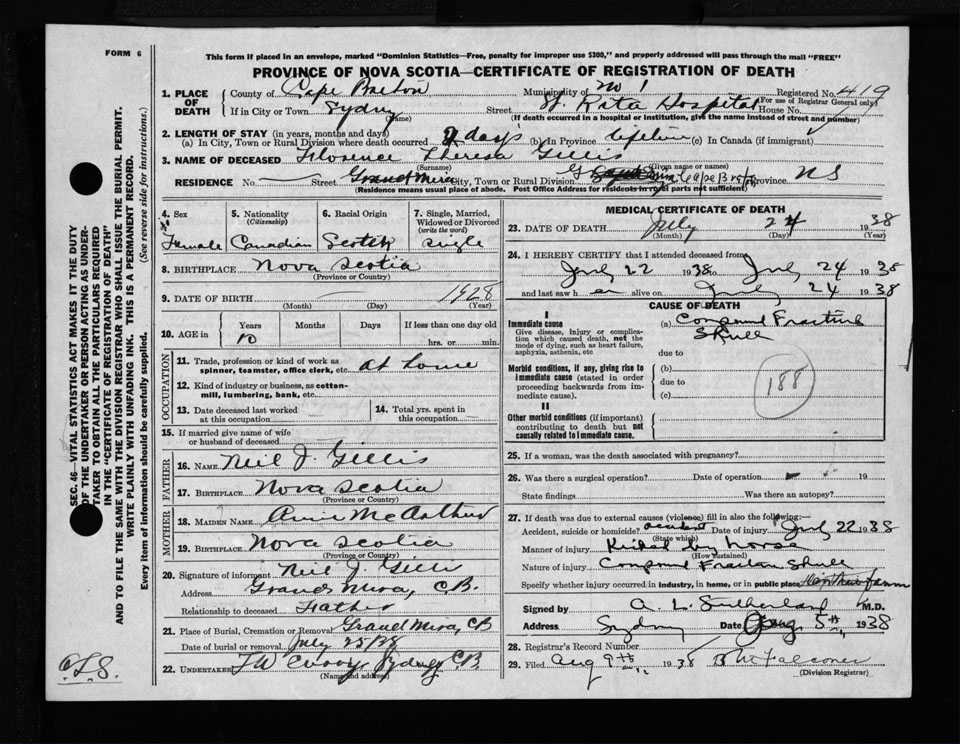 FORM 6
This form if placed in an envelope, marked "Dominion Statistics—Free, penalty for improper use $300," and properly addressed will pass through the mail "FREE"
PROVINCE OF NOVA SCOTIA—CERTIFICATE OF REGISTRATION OF DEATH
1. PLACE OF DEATH
County of Cape Breton Municipality of No 1 Registered No. 419
(For use of Registrar General only)
If in City or Town Sydney (Name) Street St. Rita Hospital House No.
(If death occurred in a hospital or institution, give the name instead of street and number)
2. LENGTH OF STAY (in years, months and days)
(a) In City, Town or Rural Division where death occurred 2 days (b) In Province lifetime (c) In Canada (if immigrant)
3. NAME OF DECEASED Florence Theresa Gillis
(Surname) (Given name or names)
RESIDENCE No. Street Grand Mira City, Town or Rural Division Cape Breton Province NS
(Residence means usual place of abode. Post Office Address for residents in rural parts not sufficient)
4. Sex Female
5. Nationality (Citizenship) Canadian
6. Racial Origin Scotch
7. Single, Married, Widowed or Divorced (write the word) single
8. BIRTHPLACE Nova Scotia
(Province or Country)
9. DATE OF BIRTH 1928
(Month) (Day) (Year)
10. AGE in Years 10 Months Days If less than one day old hrs. or min.
OCCUPATION
11. Trade, profession or kind of work as spinner, teamster, office clerk, etc. at home
12. Kind of industry or business, as cotton-mill, lumbering, bank, etc.
13. Date deceased last worked at this occupation
14. Total yrs. spent in this occupation
15. If married give name of wife or husband of deceased
FATHER
16. NAME Neil J. Gillis
17. BIRTHPLACE Nova Scotia
(Province or Country)
MOTHER
18. MAIDEN NAME Annie McArthur
19. BIRTHPLACE Nova Scotia
(Province or Country)
20. Signature of informant Neil J. Gillis
Address Grand Mira, C.B.
Relationship to deceased Father
21. Place of Burial, Cremation or Removal Grand Mira, CB
Date of burial or removal July 25/38
22. UNDERTAKER Sydney CB
(Name and address)
MEDICAL CERTIFICATE OF DEATH
23. DATE OF DEATH July 24 1938
(Month) (Day) (Year)
24. I HEREBY CERTIFY that I attended deceased from
July 22 1938 to July 24 1938
and last saw h er alive on July 24 1938
CAUSE OF DEATH
I
Immediate cause
Give disease, injury or complication which caused death, not the mode of dying, such as heart failure, asphyxia, asthenia, etc
(a) Compound Fracture Skull
due to
Morbid conditions, if any, giving rise to immediate cause (stated in order proceeding backwards from immediate cause).
(b)
due to
(c)
188
II
Other morbid conditions (if important) contributing to death but not causally related to immediate cause.
25. If a woman, was the death associated with pregnancy?
26. Was there a surgical operation? Date of operation 19
State findings Was there an autopsy?
27. If death was due to external causes (violence) fill in also the following:—
Accident, suicide or homicide? accident Date of injury July 22 1938
(State which)
Manner of injury Kicked by horse
(How sustained)
Nature of injury Compound Fracture Skull
Specify whether injury occurred in industry, in home, or in public place farm
Signed by A. L. Sutherland M.D.
Address Sydney Date Aug 5th 1938
28. Registrar's Record Number
29. Filed Aug 9th 1938
(Division Registrar)
SEC. 46—VITAL STATISTICS ACT MAKES IT THE DUTY OF THE UNDERTAKER OR PERSON ACTING AS UNDERTAKER TO OBTAIN ALL THE PARTICULARS REQUIRED IN THE "CERTIFICATE OF REGISTRATION OF DEATH"
AND TO FILE THE SAME WITH THE DIVISION REGISTRAR WHO SHALL ISSUE THE BURIAL PERMIT.
WRITE PLAINLY WITH UNFADING INK. THIS IS A PERMANENT RECORD.
Every item of information should be carefully supplied. (See reverse side for instructions.)